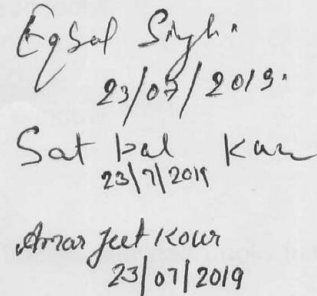 Eqbal Singh.
23/07/2019.
Sat pal Kaur
23/7/2019
Amar Jeet Kour
23/07/2019